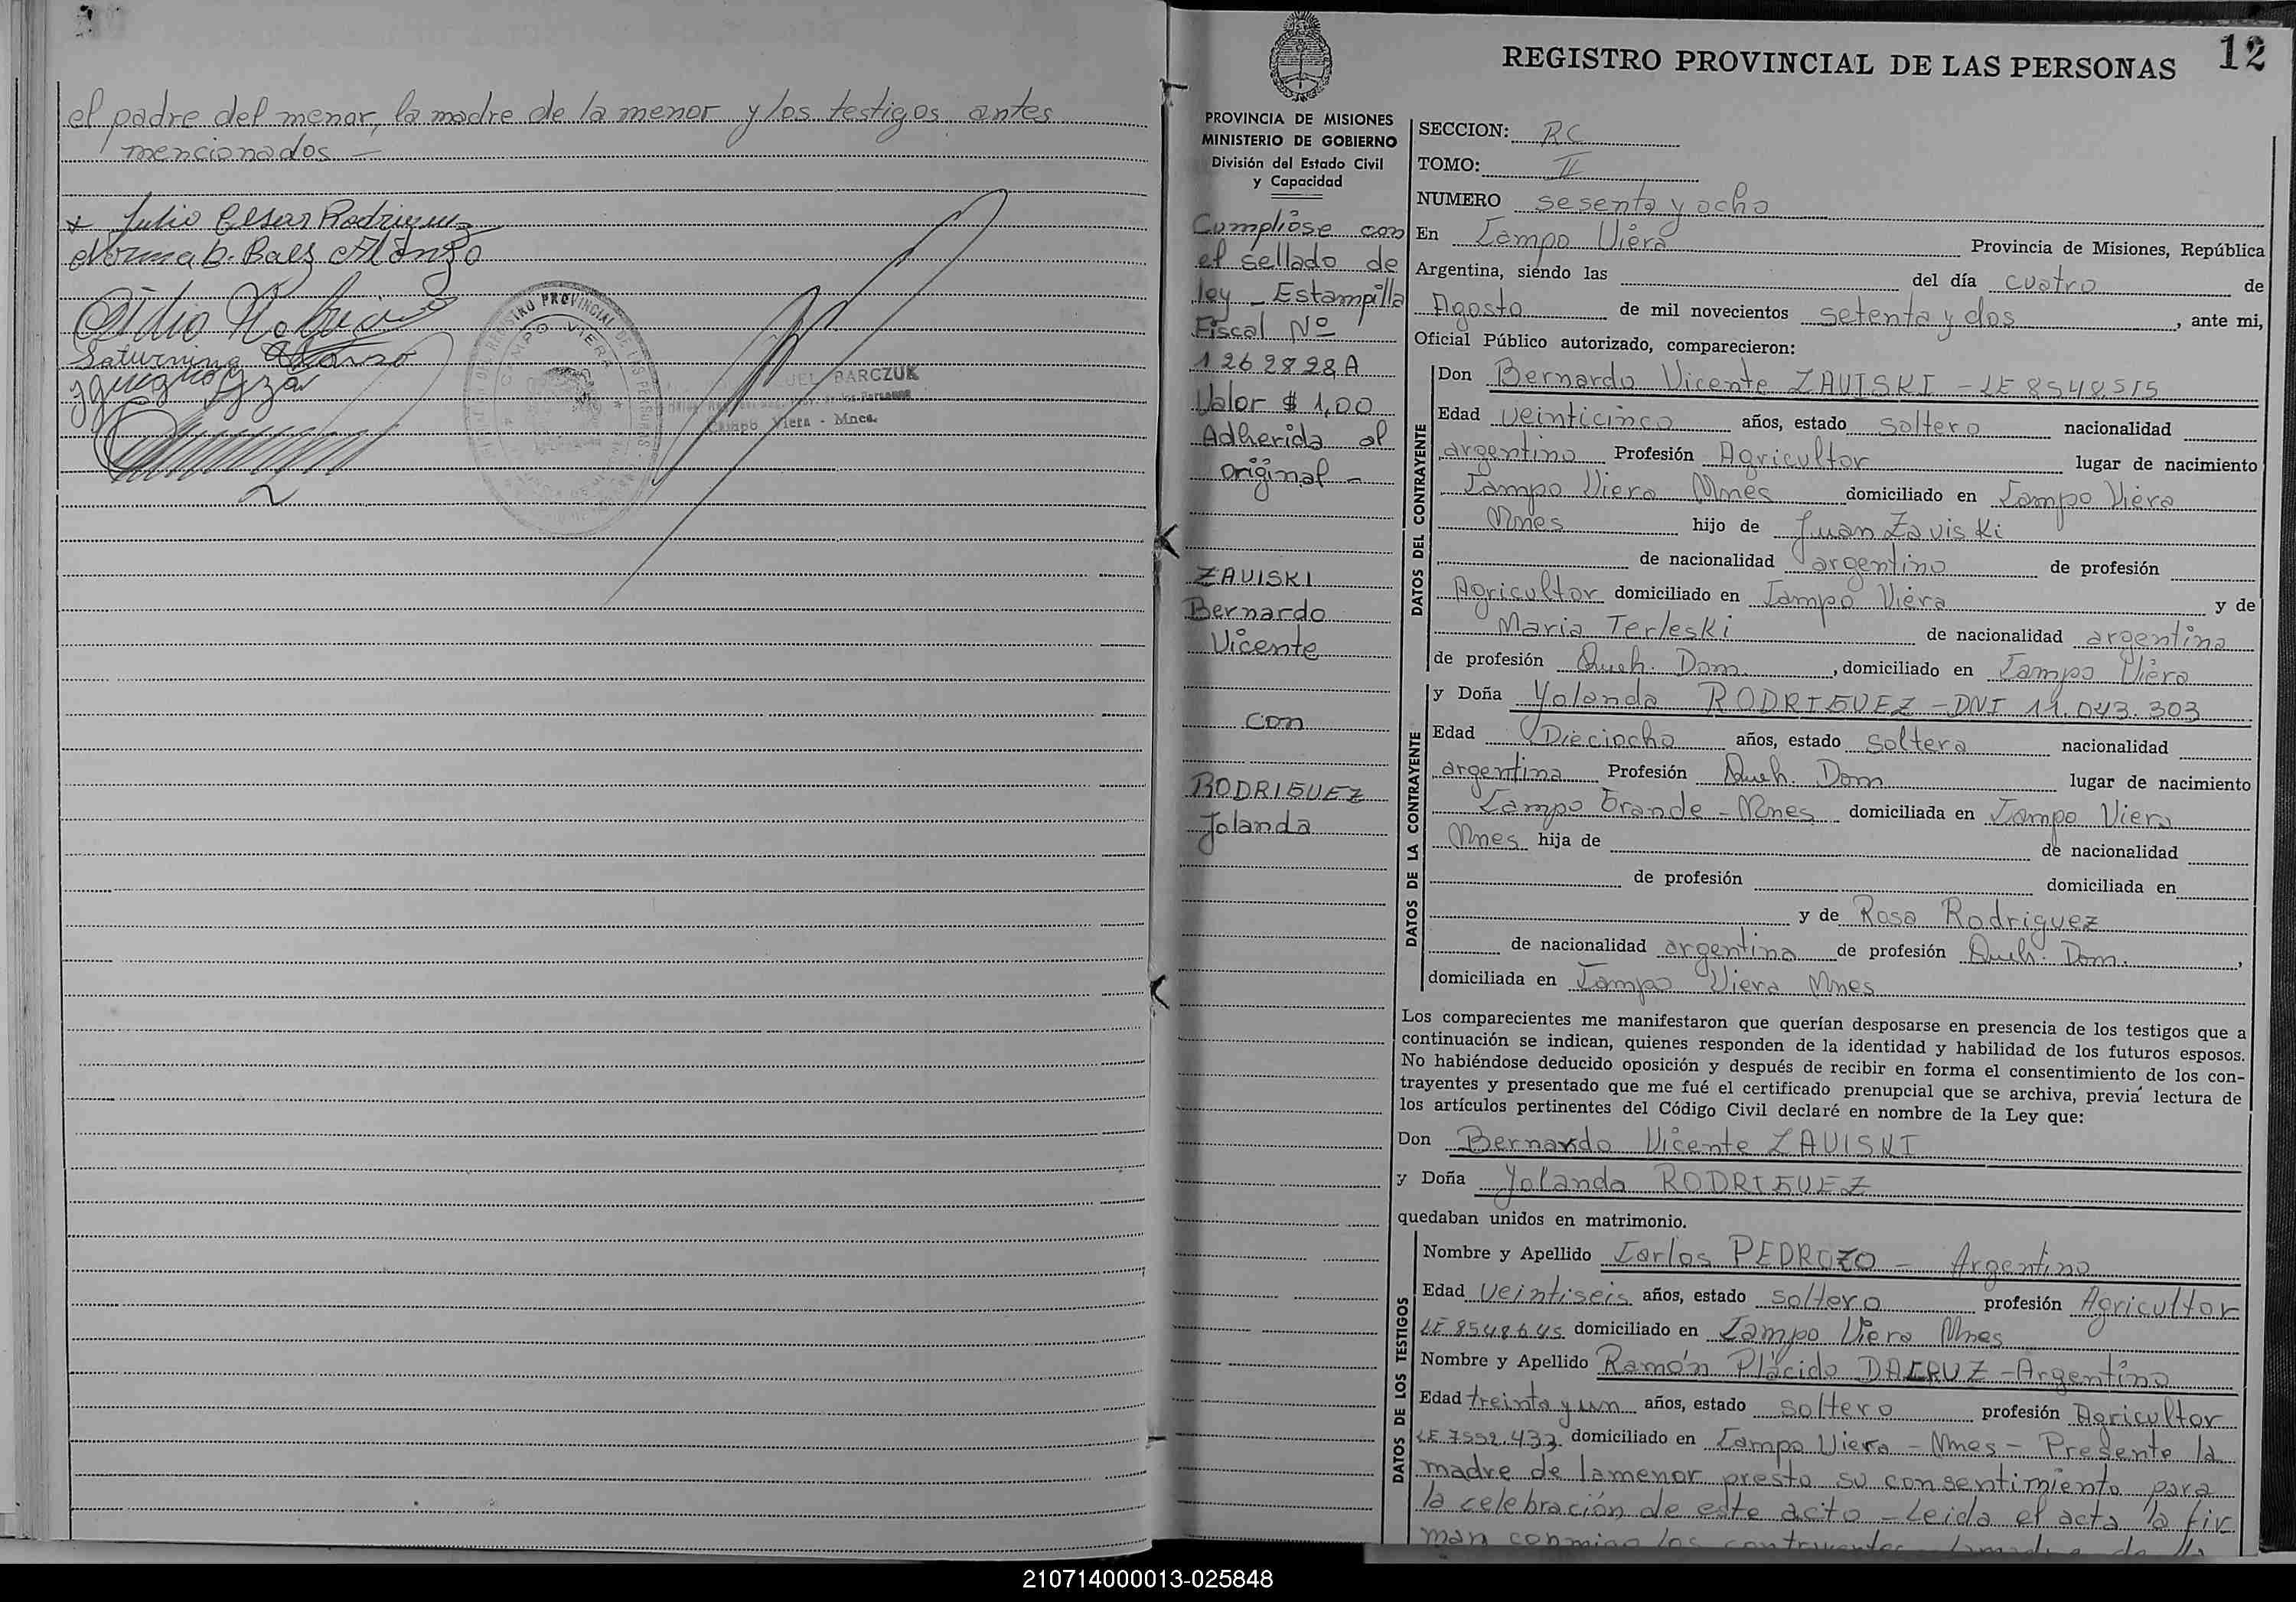 el padre del menor, la madre de la menor y los testigos antes
mencionados —
Julio Cesar Rodriguez
Norma b. Baez Alonzo
Saturnina
REGISTRO PROVINCIAL DE LAS PERSONAS
CAMPO VIERA
BARCZUK
Campo Viera - Mnes.
REGISTRO PROVINCIAL DE LAS PERSONAS 12
PROVINCIA DE MISIONES
MINISTERIO DE GOBIERNO
División del Estado Civil
y Capacidad
Cumplióse con
el sellado de
ley - Estampilla
Fiscal Nº
1262828A
Valor $ 1,00
Adherida al
original -
ZAVISKI
Bernardo
Vicente
con
RODRIGUEZ
Yolanda
SECCION: RC
TOMO: II
NUMERO sesenta y ocho
En Campo Viera Provincia de Misiones, República
Argentina, siendo las del día cuatro de
Agosto de mil novecientos setenta y dos, ante mi,
Oficial Público autorizado, comparecieron:
DATOS DEL CONTRAYENTE
Don Bernardo Vicente ZAVISKI - LE 8548.515
Edad veinticinco años, estado soltero nacionalidad
argentino Profesión Agricultor lugar de nacimiento
Campo Viera Mnes domiciliado en Campo Viera
Mnes hijo de Juan Zaviski
de nacionalidad argentino de profesión
Agricultor domiciliado en Campo Viera y de
Maria Terleski de nacionalidad argentina
de profesión Queh. Dom., domiciliado en Campo Viera
DATOS DE LA CONTRAYENTE
y Doña Yolanda RODRIGUEZ - DNI 11.043.303
Edad Dieciocho años, estado soltera nacionalidad
argentina Profesión Queh. Dom lugar de nacimiento
Campo Grande - Mnes domiciliada en Campo Viera
Mnes hija de de nacionalidad
de profesión domiciliada en
y de Rosa Rodriguez
de nacionalidad argentina de profesión Queh. Dom.,
domiciliada en Campo Viera Mnes
Los comparecientes me manifestaron que querían desposarse en presencia de los testigos que a
continuación se indican, quienes responden de la identidad y habilidad de los futuros esposos.
No habiéndose deducido oposición y después de recibir en forma el consentimiento de los con-
trayentes y presentado que me fué el certificado prenupcial que se archiva, previa lectura de
los artículos pertinentes del Código Civil declaré en nombre de la Ley que:
Don Bernardo Vicente ZAVISKI
y Doña Yolanda RODRIGUEZ
quedaban unidos en matrimonio.
DATOS DE LOS TESTIGOS
Nombre y Apellido Carlos PEDROZO - Argentino
Edad veintiseis años, estado soltero profesión Agricultor
LE 8548645 domiciliado en Campo Viera Mnes
Nombre y Apellido Ramón Plácido DACRUZ - Argentino
Edad treinta y un años, estado soltero profesión Agricultor
LE 7552.433 domiciliado en Campo Viera - Mnes - Presente la
madre de la menor presta su consentimiento para
la celebración de este acto - Leida el acta la fir
man conmigo los contrayentes
210714000013-025848